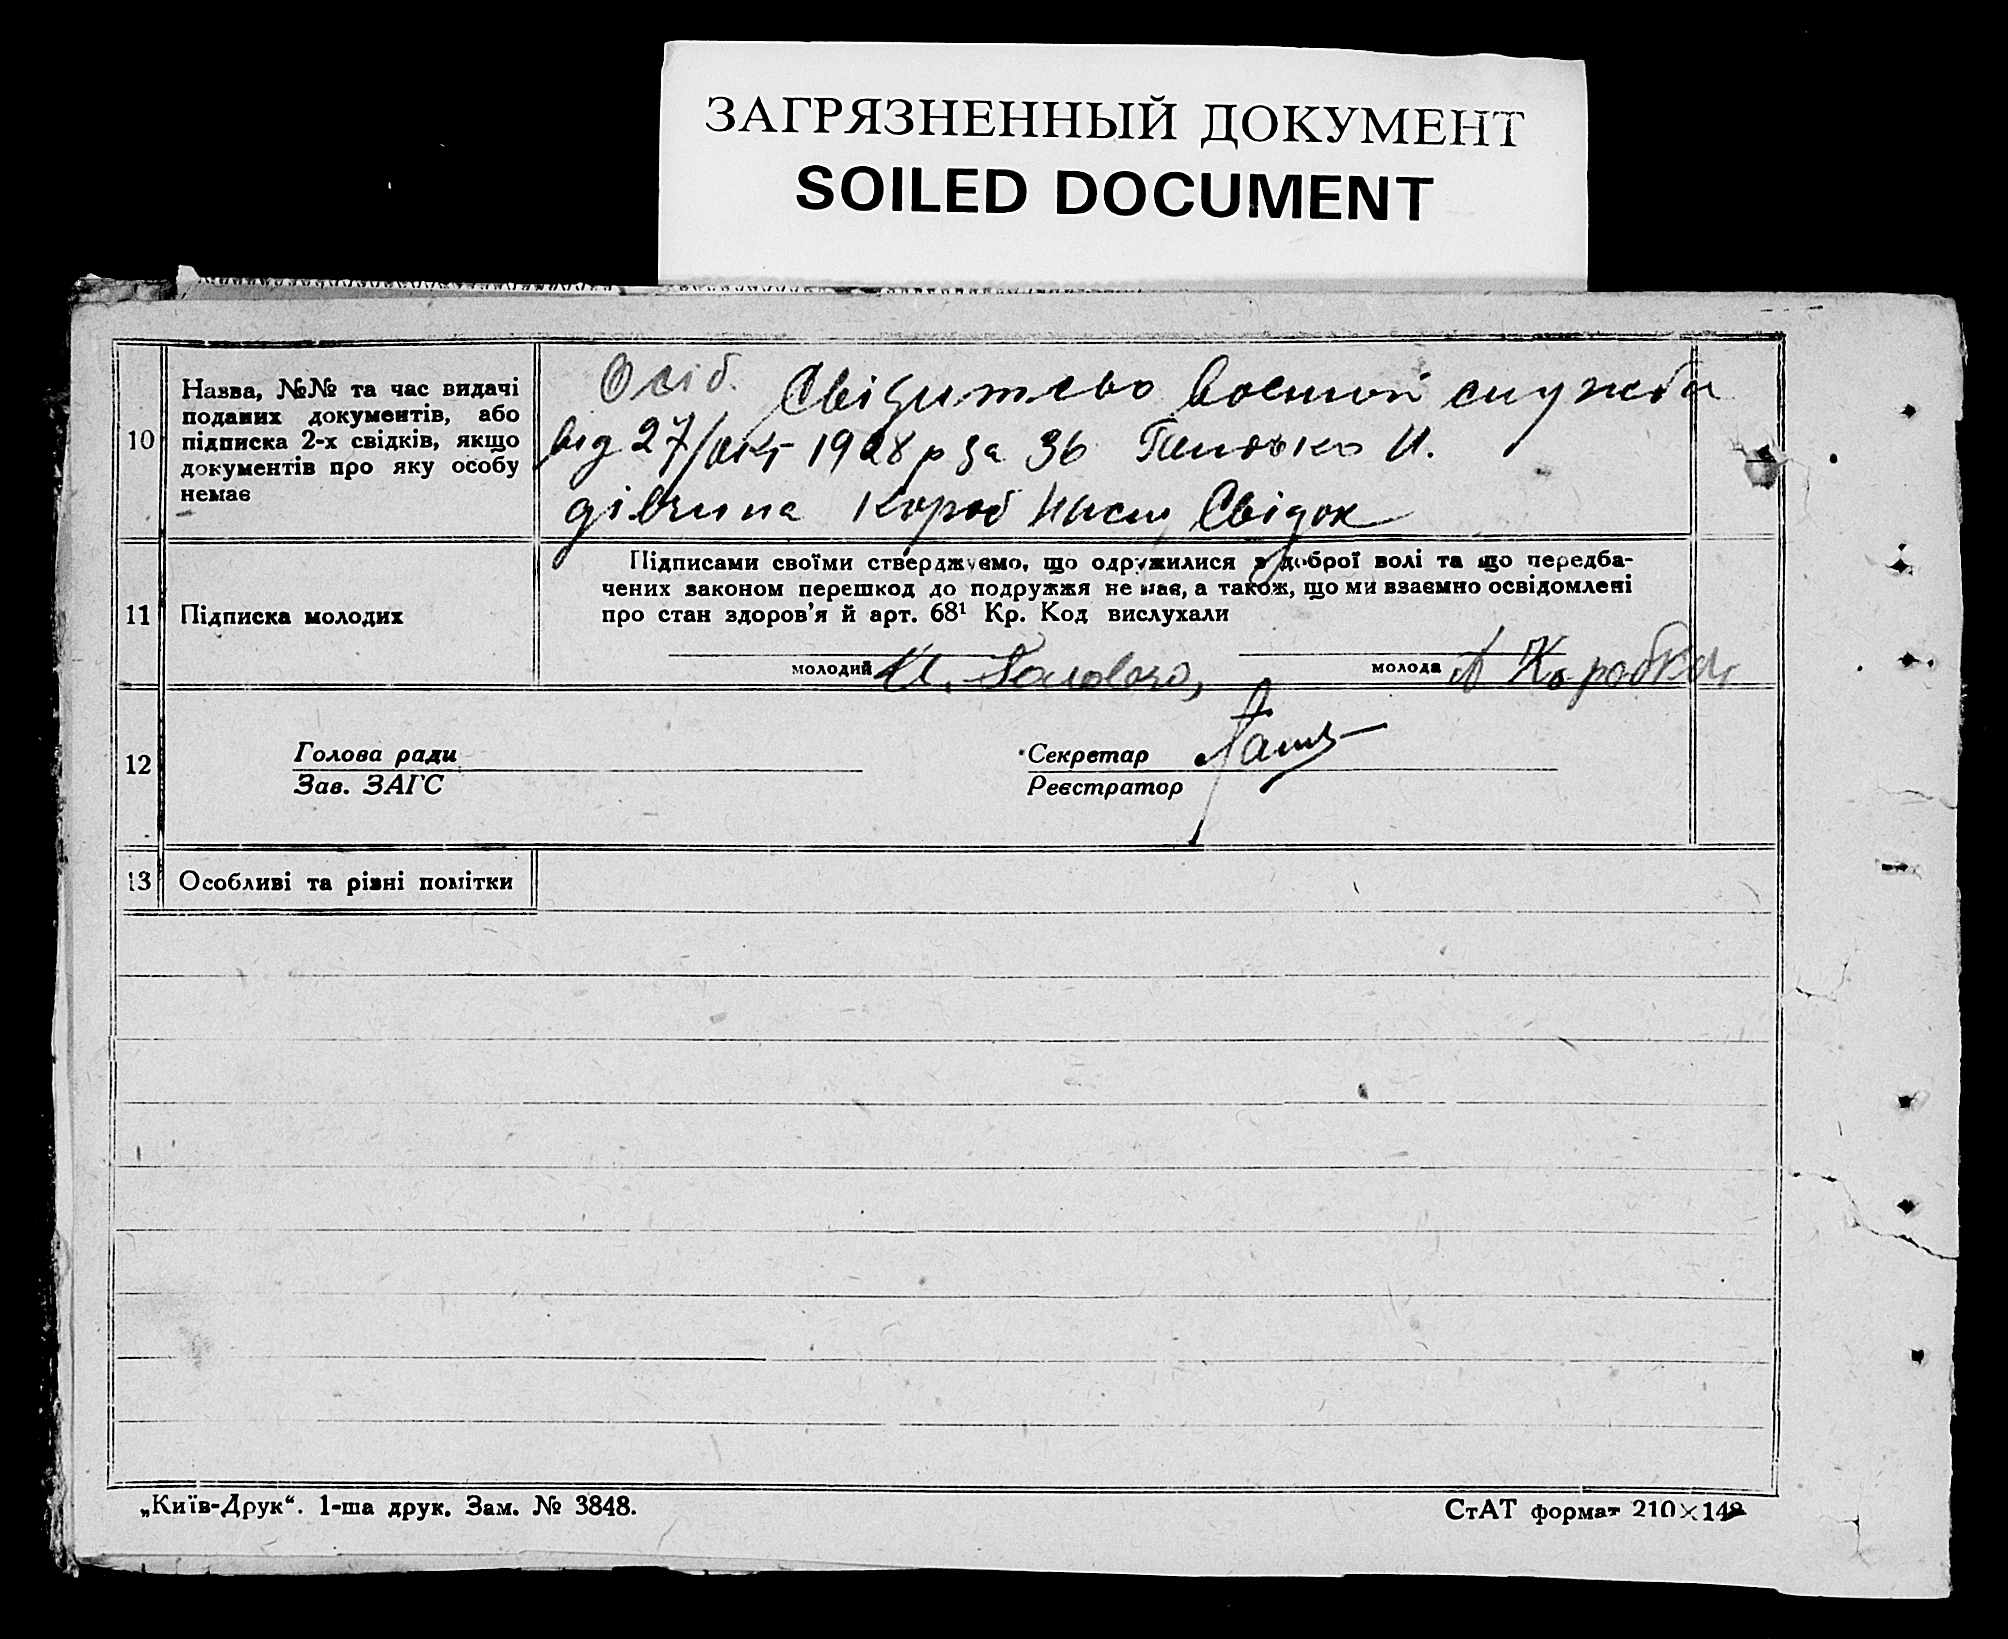 ЗАГРЯЗНЕННЫЙ ДОКУМЕНТ
SOILED DOCUMENT
10
Назва, №№ та час видачі
поданих документів, або
підписка 2-х свідків, якщо
документів про яку особу
немає
Осіб. Свідитство военой служби
від 27/окт 1928 р за 36 И.
дівчина Свідок
11
Підписка молодих
Підписами своїми стверджуємо, що одружилися з доброї волі та що передба-
чених законом перешкод до подружжя не має, а також, що ми взаємно освідомлені
про стан здоров'я й арт. 68¹ Кр. Код вислухали
молодий И.
молода Коробка
12
Голова ради
Зав. ЗАГС
Секретар
Реєстратор
13
Особливі та різні помітки
„Київ-Друк“. 1-ша друк. Зам. № 3848.
СтАТ формат 210×148